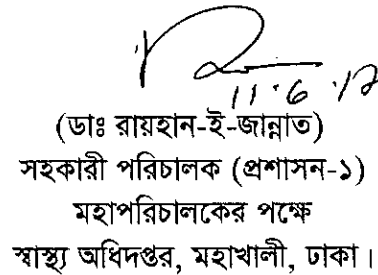 11.6.12
(ডাঃ রায়হান-ই-জান্নাত)
সহকারী পরিচালক (প্রশাসন-১)
মহাপরিচালকের পক্ষে
স্বাস্থ্য অধিদপ্তর, মহাখালী, ঢাকা।